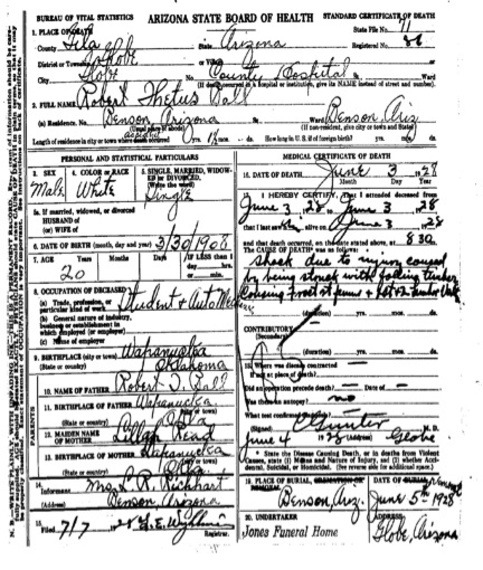 ARIZONA STATE BOARD OF HEALTH
BUREAU OF VITAL STATISTICS STANDARD CERTIFICATE OF DEATH
1. PLACE OF DEATH State File No. 11
County Gila State Arizona Registered No. 86
District or Township Globe or Village
City Globe No. County Hospital Ward
(If death occurred in a hospital or institution, give its NAME instead of street and number)
2. FULL NAME Robert Thetus Ball
(a) Residence. No. Benson, Arizona St., Ward Benson, Ariz
(Usual place of abode) (If non-resident, give city or town and State)
Length of residence in city or town where death occurred yrs. How long in U. S. if of foreign birth? yrs.
PERSONAL AND STATISTICAL PARTICULARS
3. SEX Male
4. COLOR or RACE White
5. SINGLE, MARRIED, WIDOWED or DIVORCED, (Write the word) Single
5a. If married, widowed, or divorced
HUSBAND of
(or) WIFE of
6. DATE OF BIRTH (month, day and year) 3/30/1908
7. AGE Years Months Days IF LESS than 1
20 day, hrs.
or min.
8. OCCUPATION OF DECEASED
(a) Trade, profession, or
particular kind of work Student & Auto Mechanic
(b) General nature of industry,
business or establishment in
which employed (or employer)
(c) Name of employer
9. BIRTHPLACE (city or town) Wapanucka
(State or country) Oklahoma
10. NAME OF FATHER Robert T. Ball
11. BIRTHPLACE OF FATHER Wapanucka
(State or country) (city or town) Okla
12. MAIDEN NAME OF MOTHER Lillan Read
13. BIRTHPLACE OF MOTHER Wapanucka
(State or country) (city or town) Okla
PARENTS
14. Informant Mrs. L. R. Richhart
(Address) Benson, Arizona
15. Filed 7/7 1928
Registrar.
MEDICAL CERTIFICATE OF DEATH
16. DATE OF DEATH June 3 1928
Month Day Year
17. I HEREBY CERTIFY, That I attended deceased from
June 3, 1928 to June 3, 1928
that I last saw alive on June 3, 1928
and that death occurred, on the date stated above, at 830
The CAUSE OF DEATH was as follows:
shock due to injury caused
by being struck with falling timber
causing fract of femur
(duration) yrs. mos. ds.
CONTRIBUTORY
(Secondary)
(duration) yrs. mos. ds.
18. Where was disease contracted
if not at place of death?
Did an operation precede death? — Date of —
Was there an autopsy? no
What test confirmed diagnosis?
(Signed) C Gunter M. D.
June 4 1928 (Address) Globe
State the Disease Causing Death, or in deaths from Violent Causes, state (1) Means and Nature of Injury, and (2) whether Accidental, Suicidal, or Homicidal. (See reverse side for additional space.)
19. PLACE OF BURIAL, CREMATION OR REMOVAL Benson, Ariz.
DATE OF BURIAL June 5th 1928
20. UNDERTAKER Jones Funeral Home
(ADDRESS) Globe, Arizona